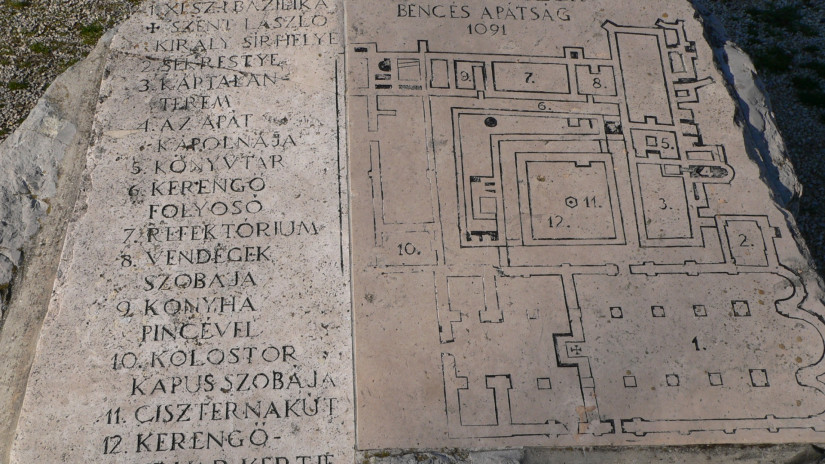 1. XI. SZ-I BAZILIKA
✠ SZENT LÁSZLÓ
KIRÁLY SÍRHELYE
2. SEKRESTYE
3. KÁPTALAN-
TEREM
4. AZ APÁT
KÁPOLNÁJA
5. KÖNYVTÁR
6. KERENGŐ
FOLYOSÓ
7. REFEKTÓRIUM
8. VENDÉGEK
SZOBÁJA
9. KONYHA
PINCÉVEL
10. KOLOSTOR
KAPUS SZOBÁJA
11. CISZTERNAKÚT
12. KERENGŐ-
KERTJE
BENCÉS APÁTSÁG
1091
9.
7.
8.
6.
5.
11.
12.
3.
10.
2.
1.